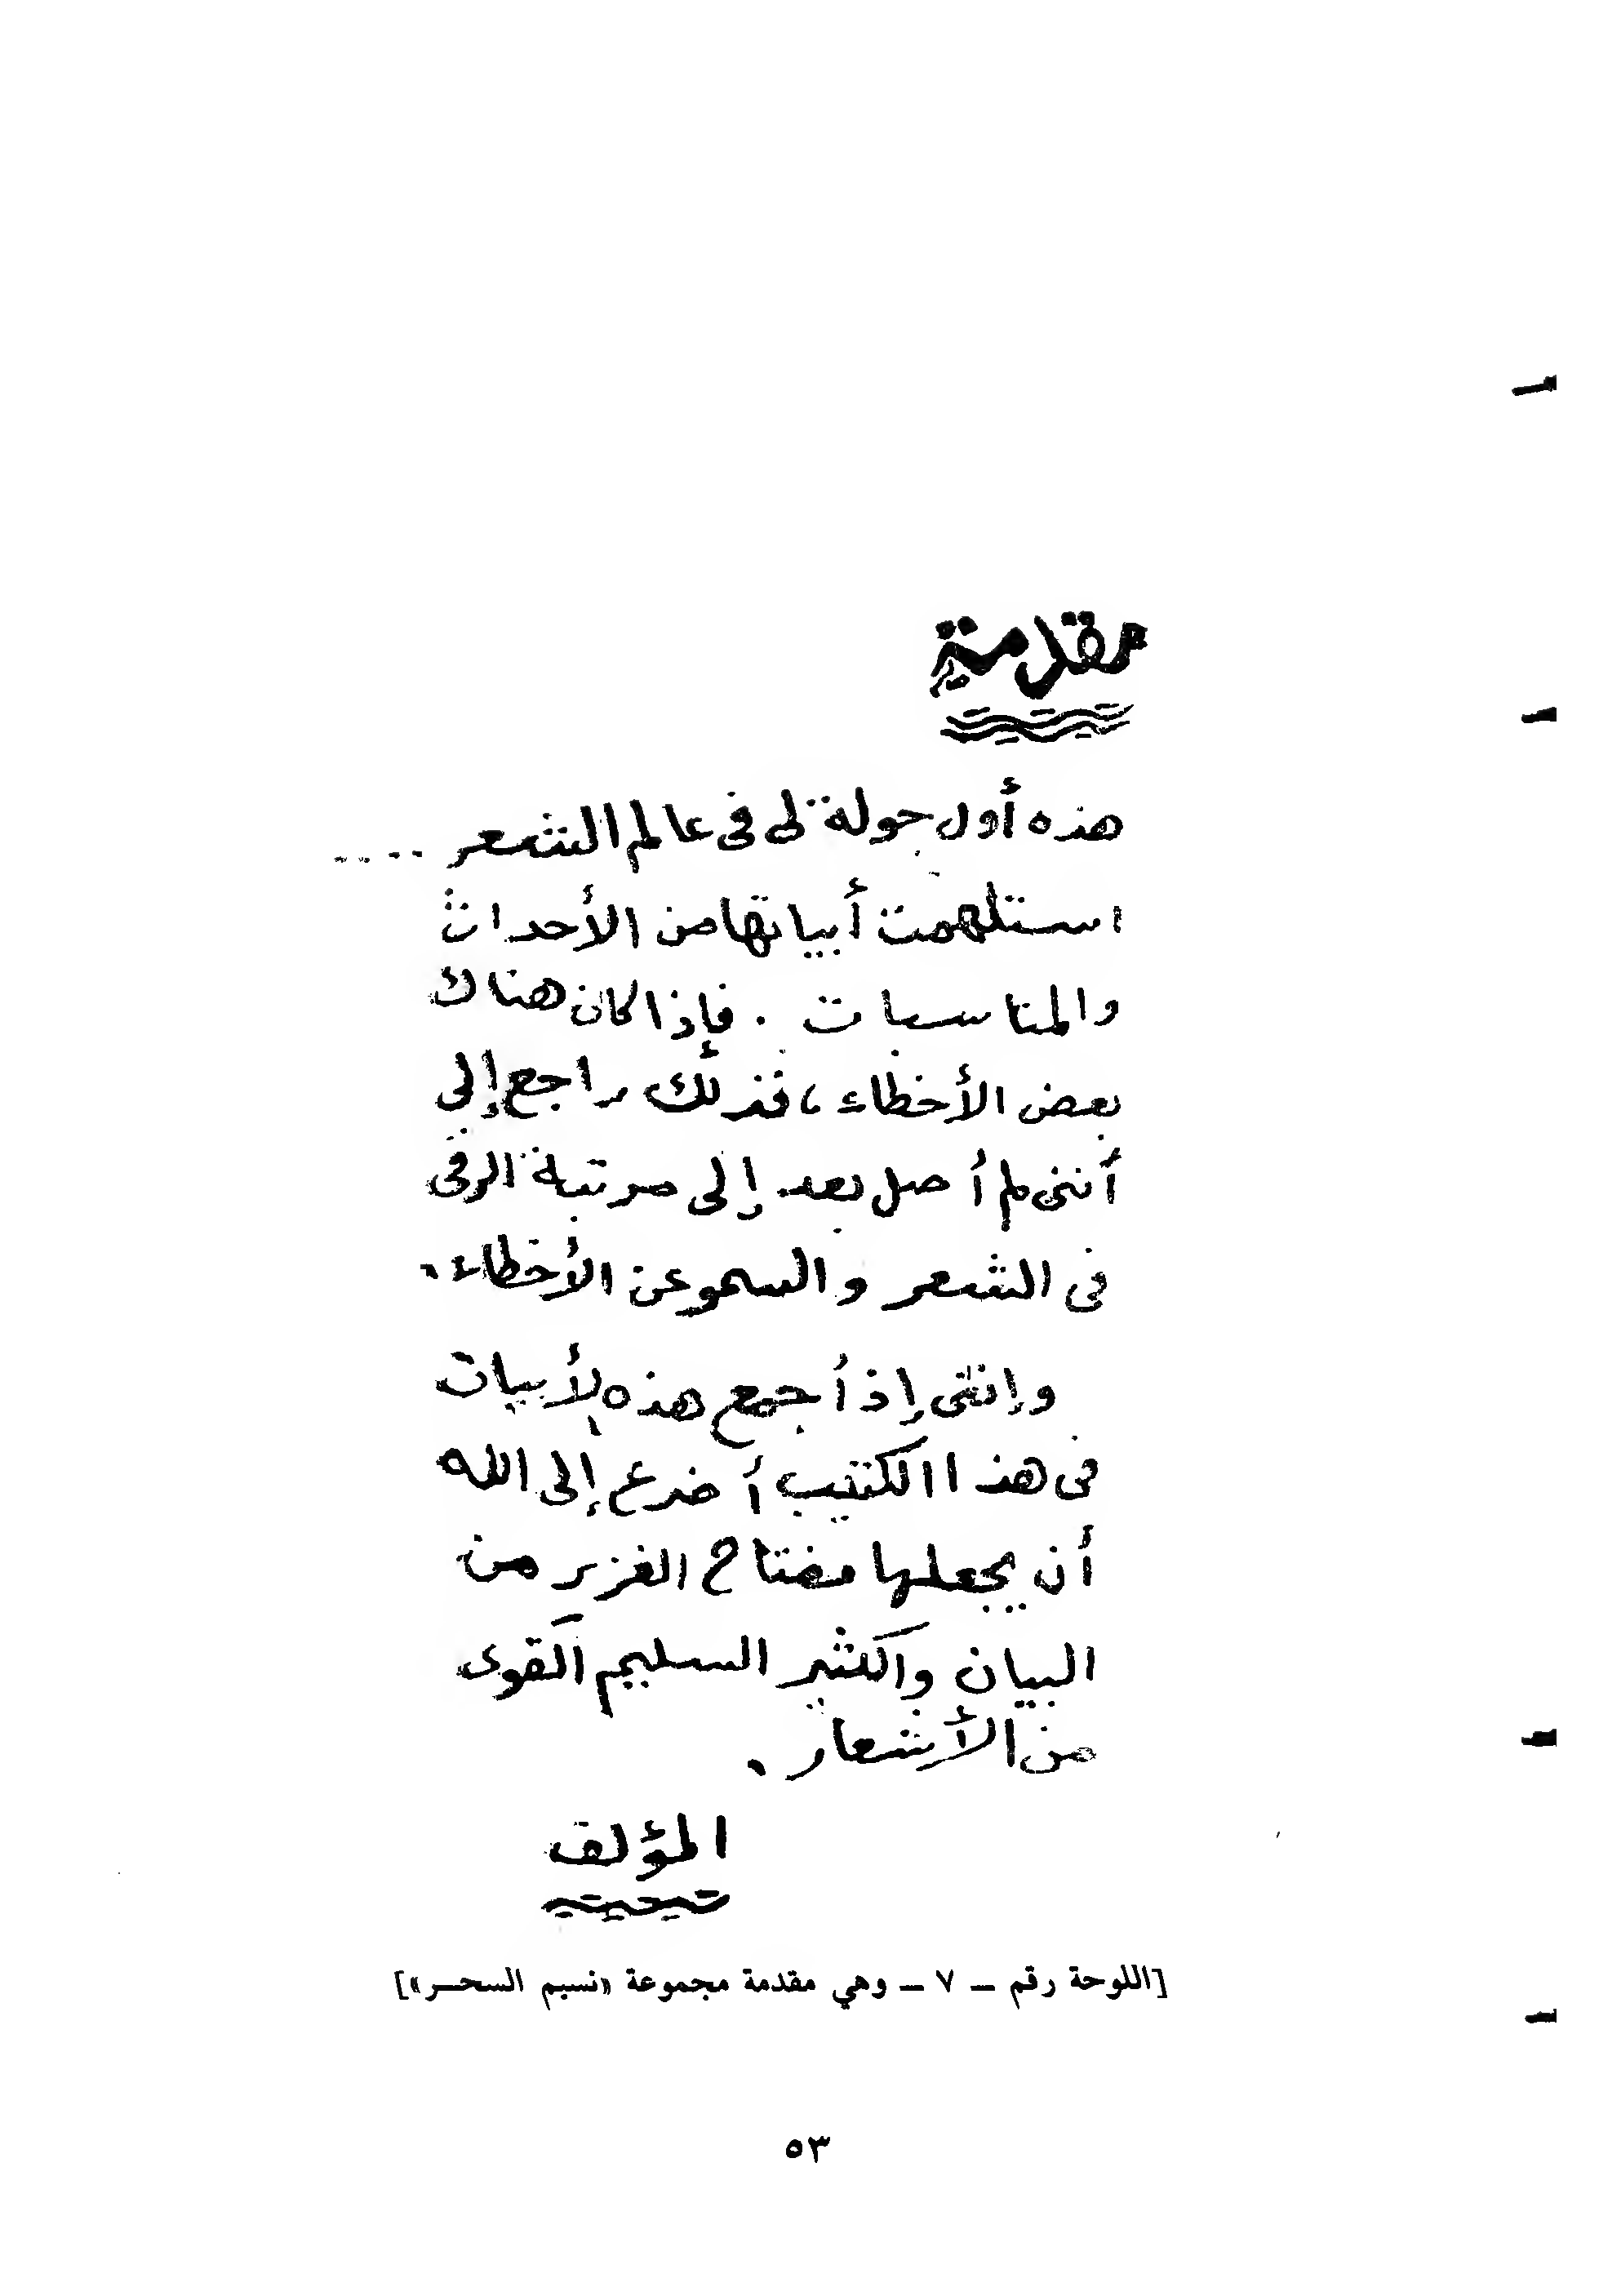 مقدمة
هذه أول جولة لى فى عالم الشعر ....
استلهمت أبياتها من الأحداث
والمناسبات . فإذا كان هناك
بعض الأخطاء ، فذلك راجع إلى
أننى لم أصل بعد إلى مرتبة الرقى
فى الشعر والسمو عن الأخطاء .
وإننى إذ أجمع هذه الأبيات
فى هذا الكتيب أضرع إلى الله
أن يجعلها مفتاح الغزير من
البيان والكثير السليم القوى
من الأشعار .
المؤلف
[اللوحة رقم ــ ٧ ــ وهي مقدمة مجموعة «نسيم السحــر»]
٥٣